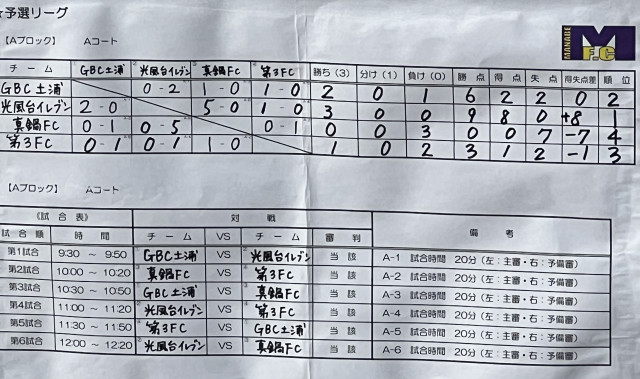 ★予選リーグ
【Aブロック】 Aコート
MANABE M F.C
チーム GBC土浦 光風台イレブン 真鍋FC 第3FC 勝ち(3) 分け(1) 負け(0) 勝点 得点 失点 得失点差 順位
GBC土浦 0-2 1-0 1-0 2 0 1 6 2 2 0 2
光風台イレブン 2-0 5-0 1-0 3 0 0 9 8 0 +8 1
真鍋FC 0-1 0-5 0-1 0 0 3 0 0 7 -7 4
第3FC 0-1 0-1 1-0 1 0 2 3 1 2 -1 3
【Aブロック】 Aコート
《試合表》 対戦 備考
試合順 時間 チーム VS チーム 審判
第1試合 9:30 ~ 9:50 GBC土浦 VS 光風台イレブン 当該 A-1 試合時間 20分(左:主審・右:予備審)
第2試合 10:00 ~ 10:20 真鍋FC VS 第3FC 当該 A-2 試合時間 20分(左:主審・右:予備審)
第3試合 10:30 ~ 10:50 GBC土浦 VS 真鍋FC 当該 A-3 試合時間 20分(左:主審・右:予備審)
第4試合 11:00 ~ 11:20 光風台イレブン VS 第3FC 当該 A-4 試合時間 20分(左:主審・右:予備審)
第5試合 11:30 ~ 11:50 第3FC VS GBC土浦 当該 A-5 試合時間 20分(左:主審・右:予備審)
第6試合 12:00 ~ 12:20 光風台イレブン VS 真鍋FC 当該 A-6 試合時間 20分(左:主審・右:予備審)